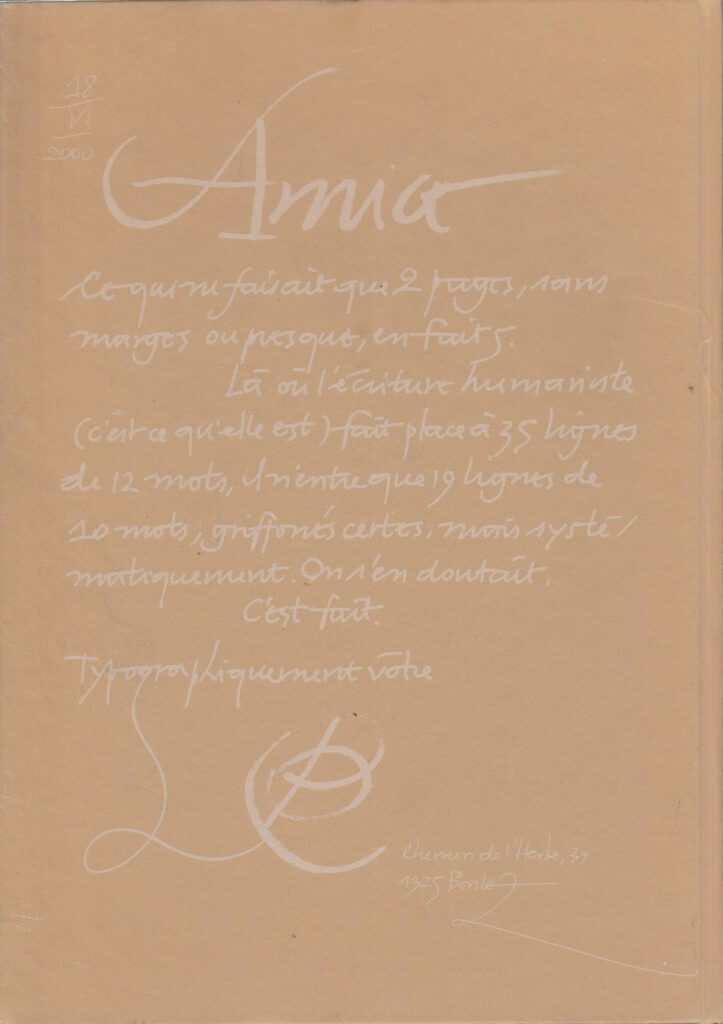 18
VI
2000
Amis
Ce qui ne faisait que 2 pages, sans
marges ou presque, en fait 5.
Là où l'écriture humaniste
(c'est ce qu'elle est) fait place à 35 lignes
de 12 mots, il n'entre que 19 lignes de
10 mots, griffonés certes, mais systé/
matiquement. On s'en doutait.
C'est fait.
Typographiquement vôtre
Chemin de l'Herbe, 39
1325 Bonlez